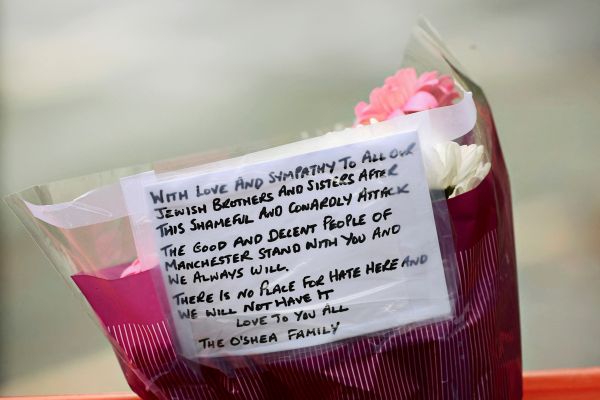 WITH LOVE AND SYMPATHY TO ALL OUR
JEWISH BROTHERS AND SISTERS AFTER
THIS SHAMEFUL AND COWARDLY ATTACK
THE GOOD AND DECENT PEOPLE OF
MANCHESTER STAND WITH YOU AND
WE ALWAYS WILL.
THERE IS NO PLACE FOR HATE HERE AND
WE WILL NOT HAVE IT
LOVE TO YOU ALL
THE O'SHEA FAMILY